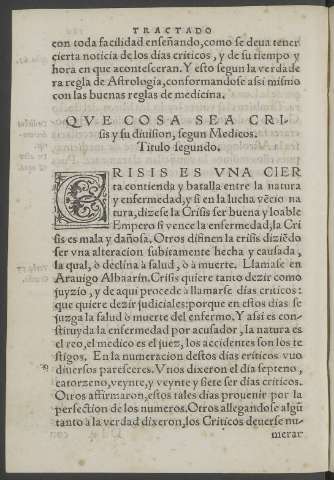 TRACTADO
con toda facilidad enseñando, como se deua tener
cierta noticia de los dias criticos, y de su tiempo y
hora en que acontesceran. Y esto segun la verdade
ra regla de Astrologia, conformandose assi mismo
con las buenas reglas de medicina.
QVE COSA SEA CRI-
sis y su diuision, segun Medicos.
Titulo segundo.
CRISIS ES VNA CIER
ta contienda y batalla entre la natura
y enfermedad, y si en la lucha vẽcio na
tura, dizese la Crisis ser buena y loable
Empero si vence la enfermedad, la Cri
sis es mala y dañosa. Otros difinen la crisis diziẽdo
ser vna alteracion subitamente hecha y causada,
la qual, ò declina à salud, ò à muerte. Llamase en
Arauigo Albaarin. Crisis quiere tanto dezir como
juyzio, y de aqui procede à llamarse dias criticos:
que quiere dezir judiciales: porque en estos dias se
juzga la salud ò muerte del enfermo. Y assi es con-
stituyda la enfermedad por acusador, la natura es
el reo, el medico es el juez, los accidentes son los te
stigos. En la numeracion destos dias criticos vuo
diuersos paresceres. Vnos dixeron el dia septeno,
catorzeno, veynte, y veynte y siete ser dias criticos.
Otros affirmaron, estos tales dias prouenir por la
perfection de los numeros. Otros allegandose algũ
tanto à la verdad dixeron, los Criticos deuerse nu-
merar